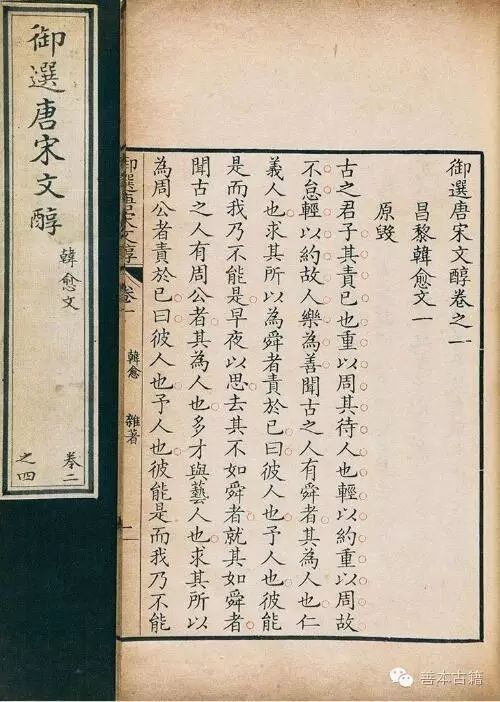 御選唐宋文醇卷之一
昌黎韓愈文一
原毀
古之君子其責已也重以周其待人也輕以約重以周故
不怠輕以約故人樂為善聞古之人有舜者其為人也仁
義人也求其所以為舜者責於已曰彼人也予人也彼能
是而我乃不能是早夜以思去其不如舜者就其如舜者
聞古之人有周公者其為人也多才與藝人也求其所以
為周公者責於已曰彼人也予人也彼能是而我乃不能
御選唐宋文醇 卷一 韓愈 雜著 一
御選唐宋文醇
韓愈文
卷二
之四
善本古籍